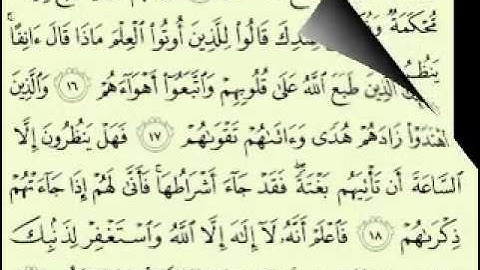 مُّحْكَمَةٌ قَالُوا۟ لِلَّذِينَ أُوتُوا۟ ٱلْعِلْمَ مَاذَا قَالَ ءَانِفًا ۚ
ٱلَّذِينَ طَبَعَ ٱللَّهُ عَلَىٰ قُلُوبِهِمْ وَٱتَّبَعُوٓا۟ أَهْوَآءَهُمْ ١٦ وَٱلَّذِينَ
ٱهْتَدَوْا۟ زَادَهُمْ هُدًى وَءَاتَىٰهُمْ تَقْوَىٰهُمْ ١٧ فَهَلْ يَنظُرُونَ إِلَّا
ٱلسَّاعَةَ أَن تَأْتِيَهُم بَغْتَةً ۖ فَقَدْ جَآءَ أَشْرَاطُهَا ۚ فَأَنَّىٰ لَهُمْ إِذَا جَآءَتْهُمْ
ذِكْرَىٰهُمْ ١٨ فَٱعْلَمْ أَنَّهُۥ لَآ إِلَٰهَ إِلَّا ٱللَّهُ وَٱسْتَغْفِرْ لِذَنۢبِكَ